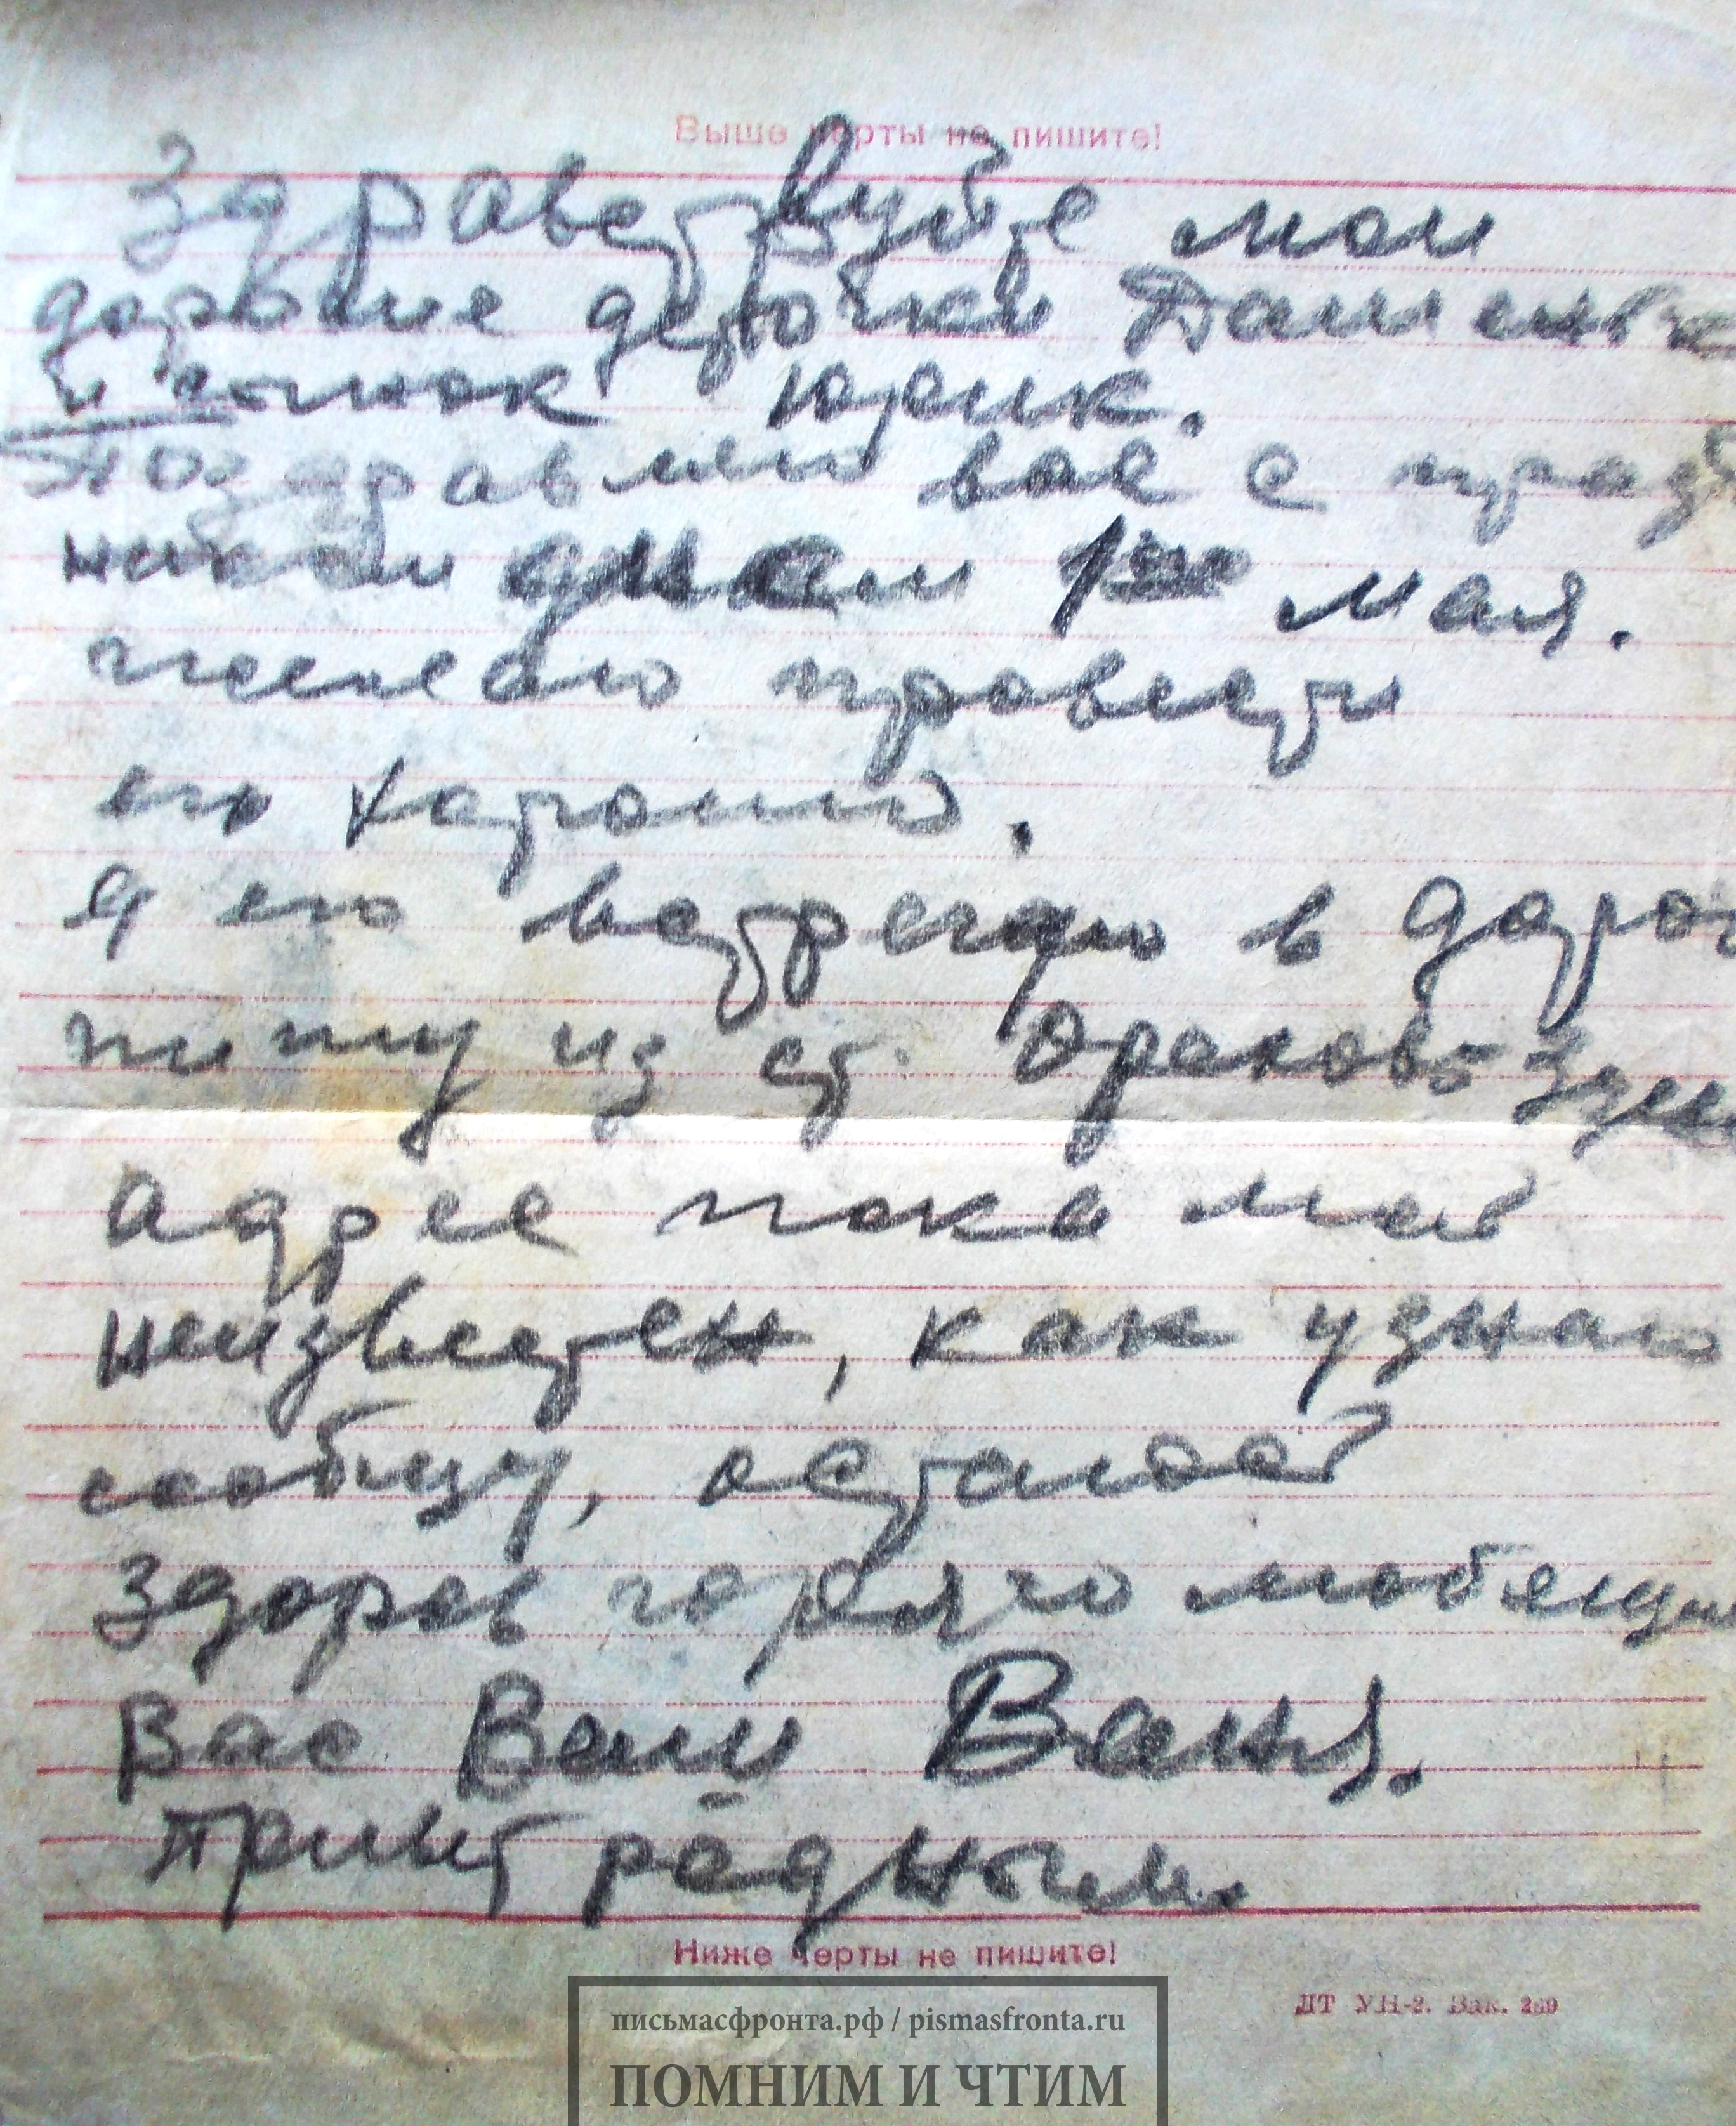 Выше черты не пишите!
Здравствуйте мои
дорогие деточки Дашеньк
и сынок Юрик.
Поздравляю вас с празд
ником днем 1ое мая.
желаю провести
его хорошо.
Я его встречаю в дорог
пишу из ст. Орехово-Зуе
адрес пока мой
неизвестен, как узнаю
сообщу, остаюсь
здоров горячо любящи
Вас Ваш Ваня.
Привет родным.
Ниже черты не пишите!
ДТ УН-2. Зак. 289
письмасфронта.рф / pismasfronta.ru
ПОМНИМ И ЧТИМ